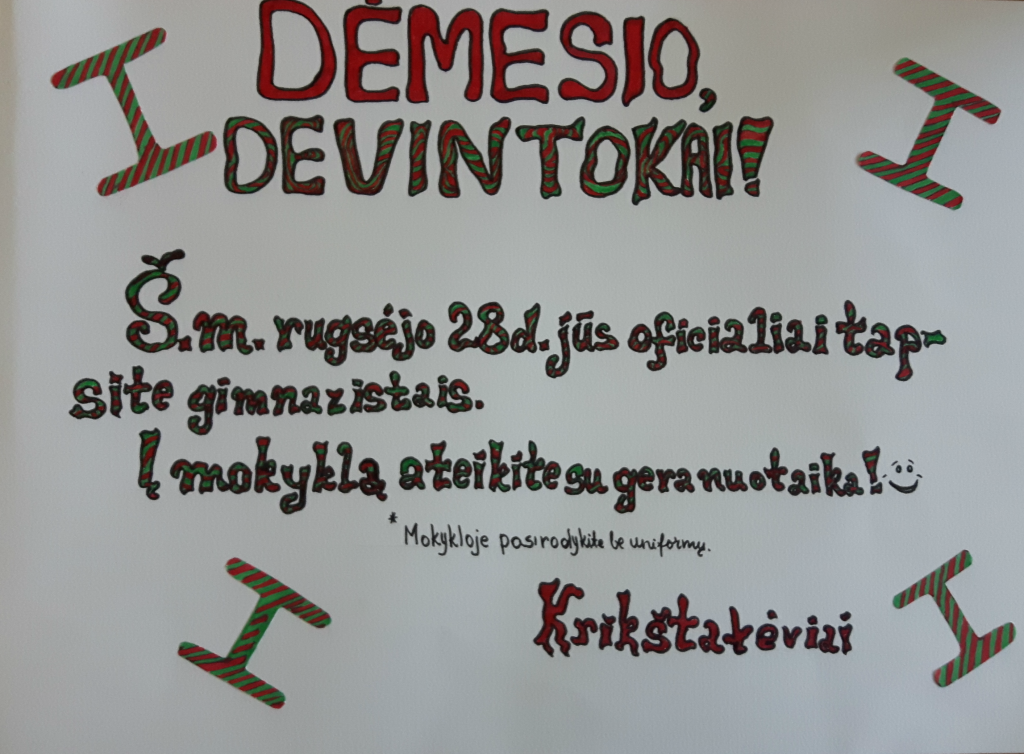 DĖMESIO,
DEVINTOKAI!
Š.m. rugsėjo 28d. jūs oficialiai tap-
site gimnazistais.
Į mokyklą ateikite su gera nuotaika!
* Mokykloje pasirodykite be uniformų.
Krikštatėviai